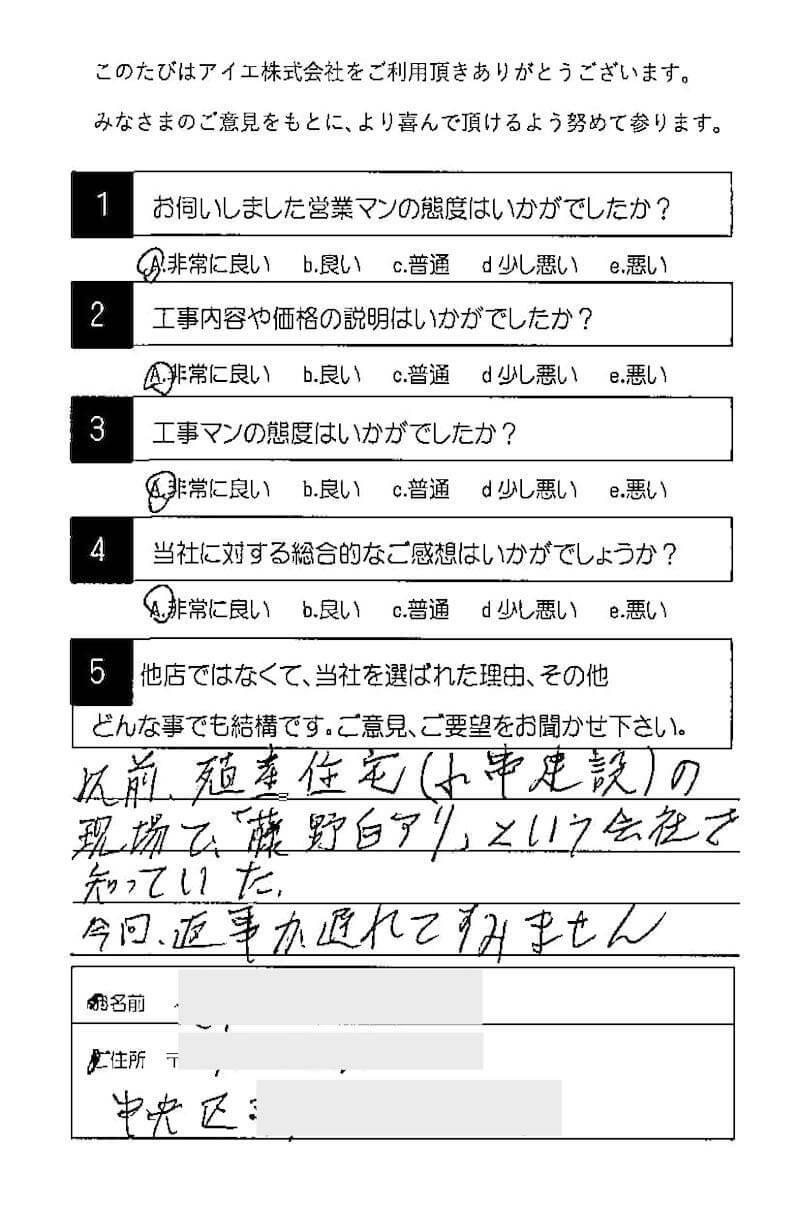 このたびはアイエ株式会社をご利用頂きありがとうございます。
みなさまのご意見をもとに、より喜んで頂けるよう努めて参ります。
1 お伺いしました営業マンの態度はいかがでしたか？
A.非常に良い b.良い c.普通 d 少し悪い e.悪い
2 工事内容や価格の説明はいかがでしたか？
A.非常に良い b.良い c.普通 d 少し悪い e.悪い
3 工事マンの態度はいかがでしたか？
A.非常に良い b.良い c.普通 d 少し悪い e.悪い
4 当社に対する総合的なご感想はいかがでしょうか？
A.非常に良い b.良い c.普通 d 少し悪い e.悪い
5 他店ではなくて、当社を選ばれた理由、その他
どんな事でも結構です。ご意見、ご要望をお聞かせ下さい。
以前、殖産住宅( 建設)の
現場で、「藤野白アリ」という会社を
知っていた。
今回、返事が遅れてすみません
名前
ご住所 〒
中央区